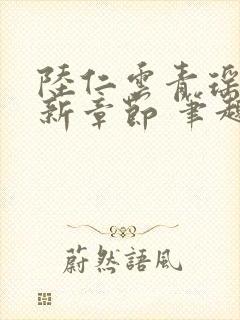 陸仁雲青瑤
新章節 筆趣
蔚然語風